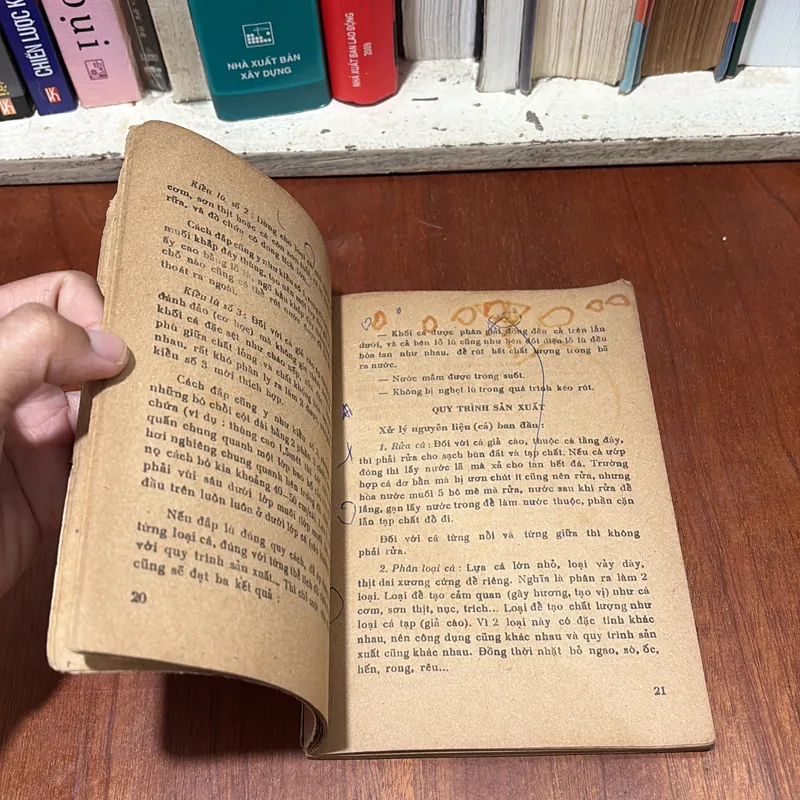 CHIẾN LƯỢC K
NHÀ XUẤT BẢN
XÂY DỰNG
NHÀ XUẤT BẢN LAO ĐỘNG
2009
Kiểu lù số 2 : Dùng cho loại
cơm, sơn thịt hoặc cá còn
rữa, và đồ chứa có dung tích
Cách đắp cũng y như kiểu số 1,
muối khắp đáy thùng, tạo nên một
ấy cao bằng lỗ lù
chỗ nào cũng có thể rút nước
thoát ra ngoài.
Kiểu lù số 3 : Đối với cá
đánh đảo (cơ học) mà không
khối cá đặc sệt như cháo
phù giữa chất lỏng và chất
nhau, rất khó phân ly ra làm 2
kiểu số 3 mới thích hợp.
Cách đắp cũng y như kiểu số
những bó chổi cột dài bằng 2
chứa (ví dụ : thùng cao 1,5 mét
quấn chung quanh một lớp bao
hơi nghiêng chung quanh bên
nọ cách bó kia khoảng 40–50 cm
phải vùi sâu dưới lớp muối
đầu trên luôn luôn ở dưới lớp cá
Nếu đắp lù đúng quy cách,
từng loại cá, đúng với từng thể tích
với quy trình sản xuất... Thì
cũng sẽ đạt ba kết quả :
20
— Khối cá được phân giải đồng đều cá trên lẫn
dưới, và cá bên lỗ lù cũng như bên đối diện lỗ lù đều
hòa tan như nhau, để rút hết chất lượng trong bã
ra nước.
— Nước mắm được trong suốt.
— Không bị nghẹt lù trong quá trình kéo rút.
QUY TRÌNH SẢN XUẤT
Xử lý nguyên liệu (cá) ban đầu :
1. Rửa cá : Đối với cá giả cào, thuộc cá tầng đáy,
thì phải rửa cho sạch bùn đất và tạp chất. Nếu cá ướp
đông thì lấy nước lã mà xả cho tan hết đá. Trường
hợp cá dơ bẩn mà bị ươn chút ít cũng nên rửa, nhưng
hòa nước muối 5 bô mê mà rửa, nước sau khi rửa để
lắng, gạn lấy nước trong để làm nước thuộc, phần cặn
lẫn tạp chất đổ đi.
Đối với cá từng nổi và từng giữa thì không
phải rửa.
2. Phân loại cá : Lựa cá lớn nhỏ, loại vảy dày,
thịt dai xương cứng để riêng. Nghĩa là phân ra làm 2
loại. Loại để tạo cảm quan (gây hương, tạo vị) như cá
cơm, sơn thịt, nục, trích... Loại để tạo chất lượng như
loại cá tạp (giả cào). Vì 2 loại này có đặc tính khác
nhau, nên công dụng cũng khác nhau và quy trình sản
xuất cũng khác nhau. Đồng thời nhặt bỏ ngao, sò, ốc,
hến, rong, rêu...
21